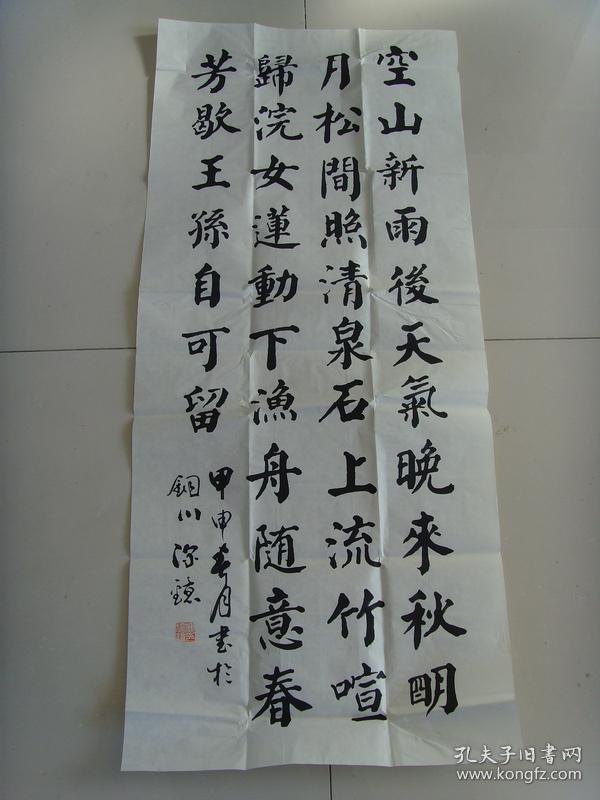 空山新雨後天氣晚來秋明
月松間照清泉石上流竹喧
歸浣女蓮動下漁舟随意春
芳歇王孫自可留
甲申春月書於
銅川
孔夫子旧書网
www.kongfz.com